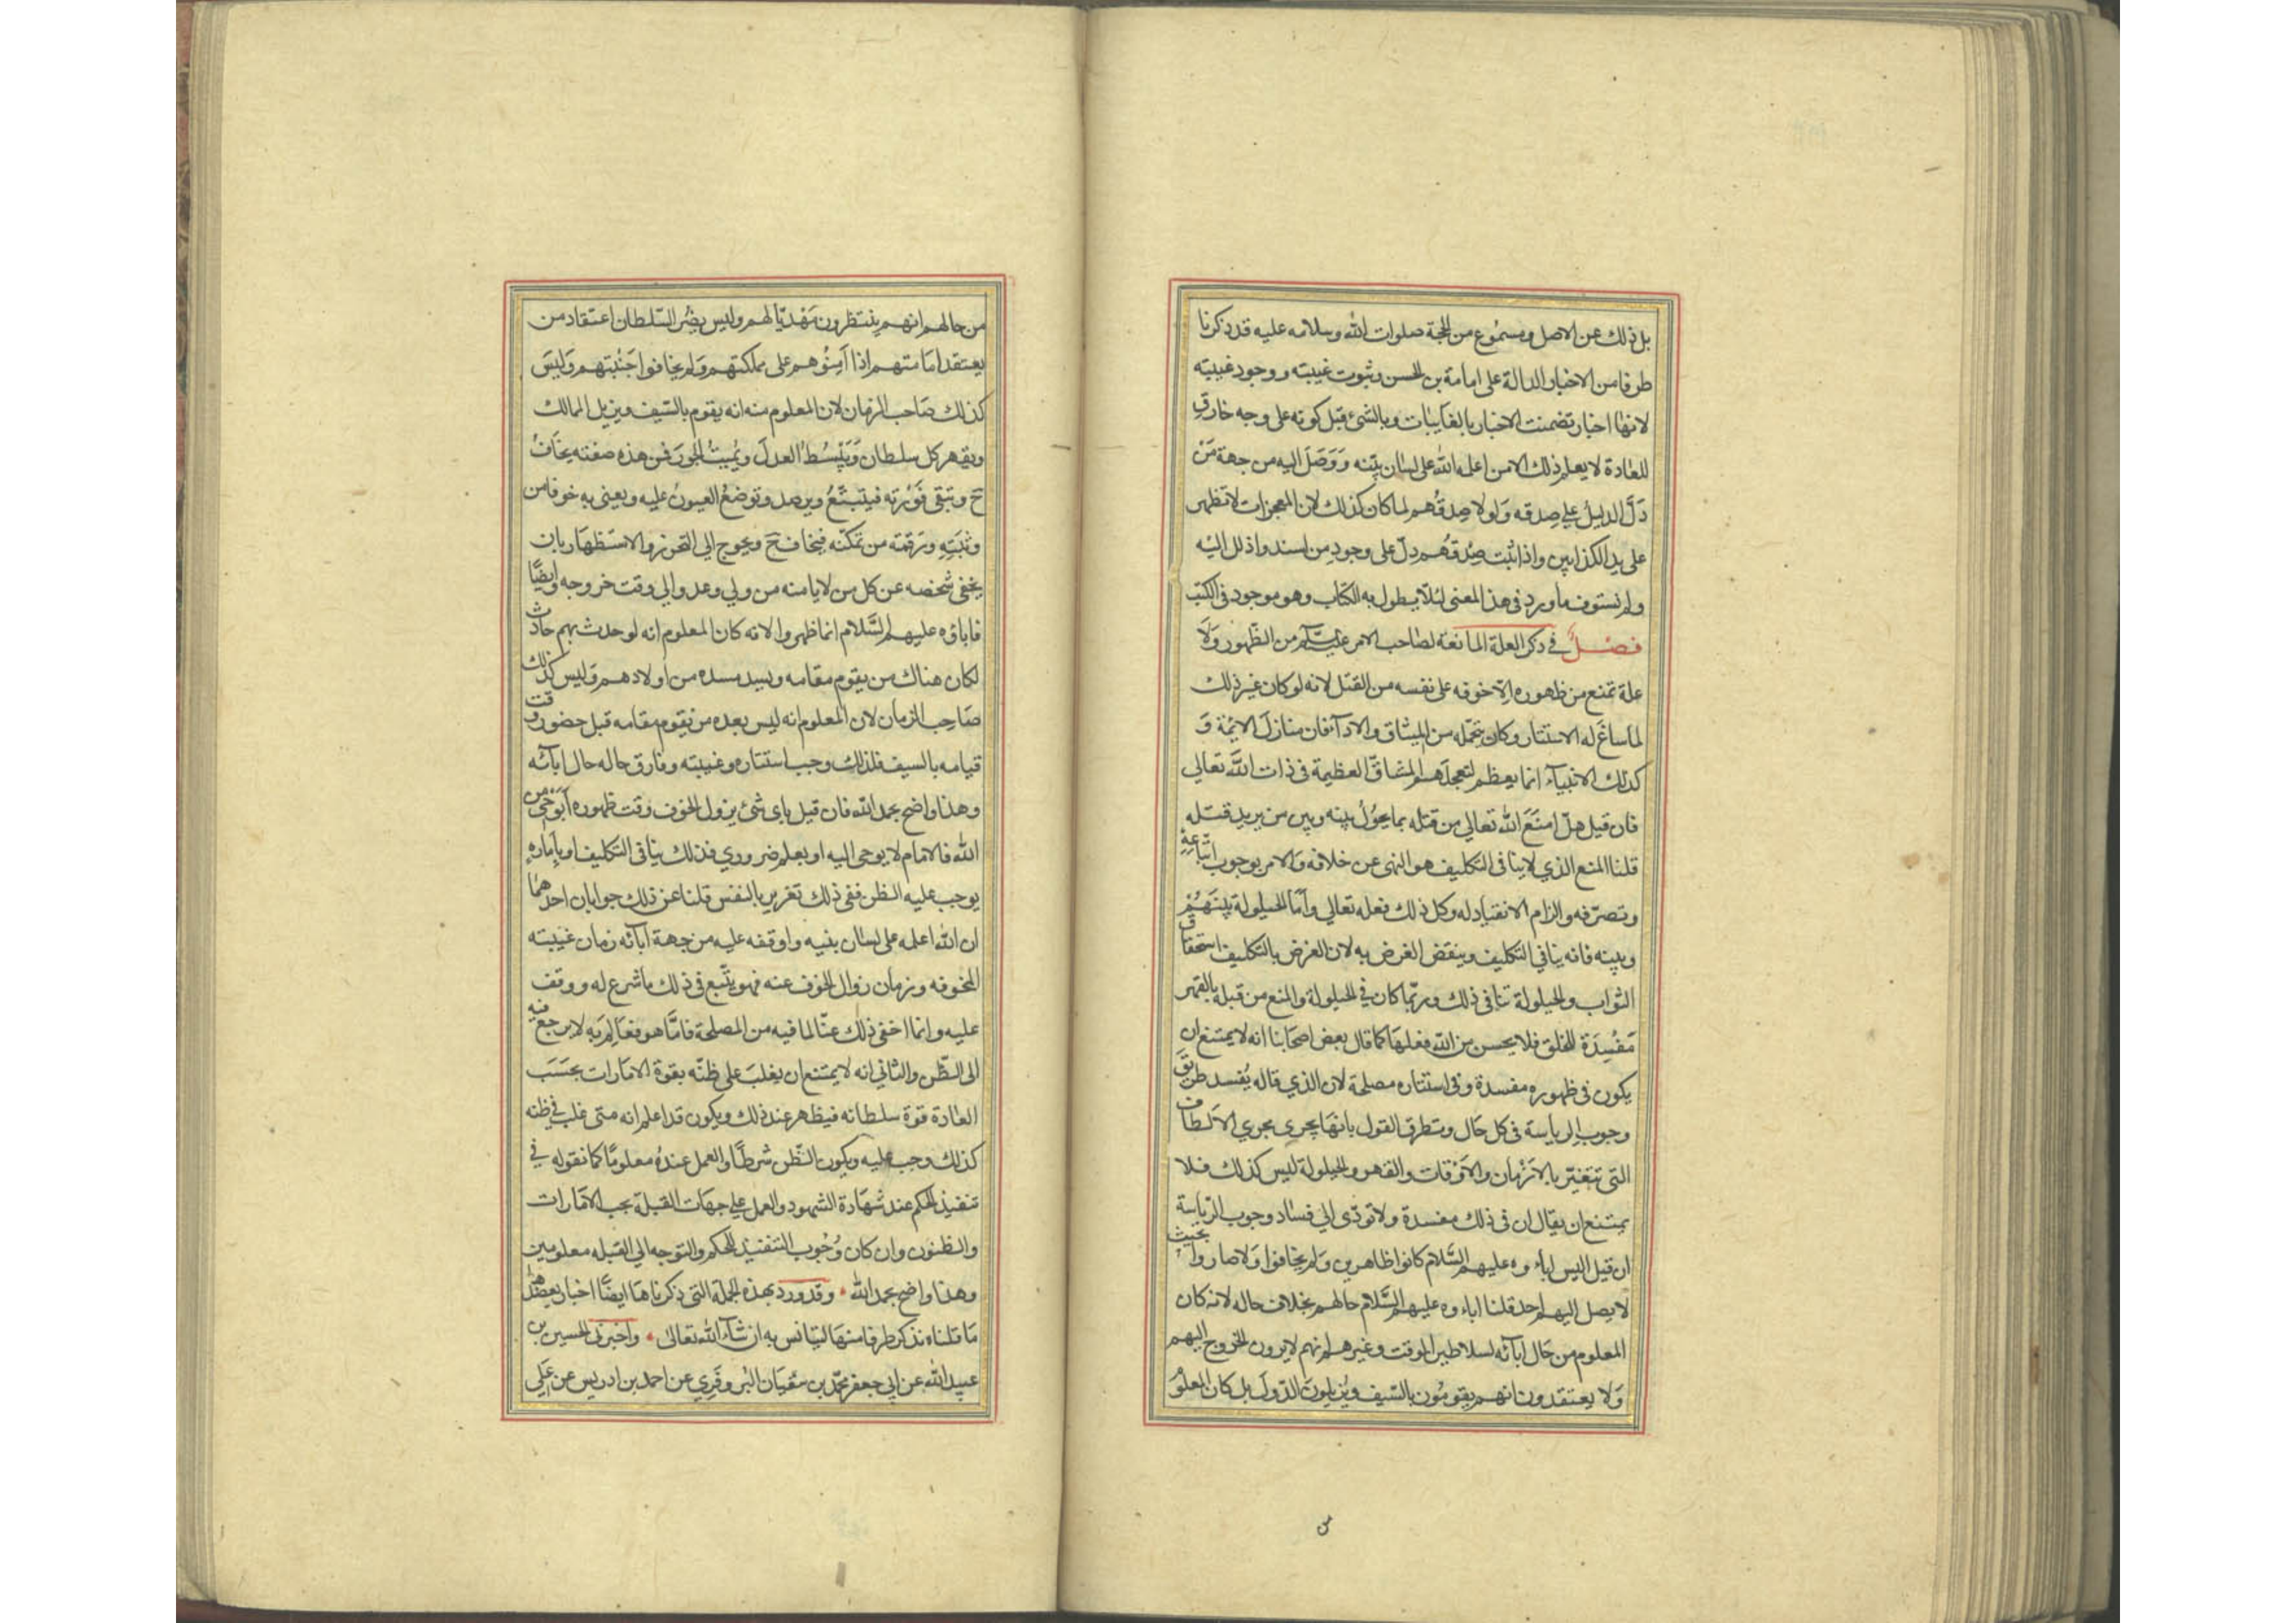 بل ذلك عن الاصل ومسموع من الحجة صلوات الله وسلامه عليه قد ذكرنا
طرفا من الاخبار الدالة على امامة بن الحسن وثبوت غيبته ووجود غيبته
لانها اخبار تضمنت الاخبار بالغايبات وبالشئ قبل كونه على وجه خارق
للعادة لا يعلم ذلك الا من اعلمه الله على لسان نبيّه وَوَصَلَ اليه من جهة مَنْ
دَلَّ الدليلُ علي صِدقه وَلولا صِدقُهم لما كان كذلك لان المعجزات لا تظهر
على يد الكذابين واذا ثبت صِدقُهم دلّ على وجود من اسندوا ذلك اليه
ولم نستوف ما ورد في هذا المعنى لئلا يطول به الكتاب وهو موجود في الكتب
فصلٌ في ذكر العلة المانعة لصاحب الامر عليه السلم من الظهور وَلَا
علة تمنع من ظهوره الّا خوفه على نفسه من القتل لانه لو كان غير ذلك
لما ساغَ له الاستتار وكان يتحمّله من المشاق والاذا فان منازلَ الايمّة وَ
كذلك الانبياء انما يعظم لتحملهم المشاقّ العظيمة في ذات اللّه تعالي
فان قيل هلّا مَنَعَ الله تعالي من قتله بما يحوُلُ بينه وبين من يريد قتله
قلنا المنع الذي لا ينافى التكليف هو النهى عن خلافه وَالامر بوجوب اتباعه
وتصرّفه والزام الانقياد له وكل ذلك فعله تعالي وأمّا الحيلولة بينهم
وبينه فانه ينافي التكليف وينقض الغرض به لان الغرض بالتكليف استحقاق
الثواب والحيلولة تنافى ذلك وربّما كان في الحيلولة والمنع من قبله بالقهر
مَفْسِدَة للخلق فلا يحسن من اللّه فعلها كما قال بعض اصحابنا انه لا يمتنع ان
يكون في ظهوره مفسدة وفى استتاره مصلحة لان الذي قاله يُفسد طريق
وجوب الرياسة في كل حَال وتطرق القول بانها يجرى مجري الالطاف
التى تتغيّر بالازمان والاوقات والقهر والحيلولة ليس كذلك فلا
يمتنع ان يقال ان في ذلك مفسدة ولا تودّى الي فساد وجوب الرّياسة
ان قيل اليس اباوه عليهم السَّلام كانوا ظاهرين وَلم يخافوا وَلا صاروا بحيث
لا يصل اليهم احد قلنا اباوه عليهم السَّلام حالهم بخلاف حاله لانه كان
المعلوم من حَال ابآئه لسلاطين الوقت وغيرهم انهم لا يرون الخروج اليهم
وَلا يعتقدون انهم يقومُون بالسّيف ويُزيلونَ الدّولَ بل كان المعلوُ
من حالهم انهم ينتظرون مَهْديّا لهم وليس يضُر السّلطان اعتقاد من
يعتقد امَامتهم اذا اَمِنُوهم على مملكتهم وَلم يخافوا جَنْبتهم وَليسَ
كذلك صَاحب الزمان لان المعلوم منه انه يقوم بالسّيف ويزيل الممالك
ويقهر كل سلطان وَيَبْسُطُ العدلَ ويُميتُ الجورَ فمن هذه صفته يخَافُ
ح وتبقى فَوْرته فيتبّعُ ويرصد وتوضعُ العيونُ عليه ويعنى به خوفا من
وثبته ورقمته من تمكنه فيخاف ح ويحوج الي التحرز والاستظهار بان
يخفي شخصه عن كل من لا يامنه من ولي وعدو الي وقت خروجه وايضًا
فاباؤه عليهم السَّلام انما ظهروا لانه كان المعلوم انه لو حدث بهم حادث
لكان هناك من يقوم مقامه ويسد مسده من اولادهم وليس كذلك
صَاحب الزمان لان المعلوم انه ليس بعده من يقوم مقامه قبل حضور وقت
قيامه بالسيف فلذلك وجب استتاره وغيبته وفارق حاله حال ابآئه
وهذا واضح بحمد اللّه فان قيل باى شئ يزول الخوف وقت ظهوره أبوَحْى من
الله فالامام لا يوحى اليه او بعلم ضروري فذلك ينافى التكليف او بامارة
يوجب عليه الظن ففى ذلك تغرير بالنفس قلنا عن ذلك جوابان احدهما
ان اللّه اعلمه على لسان نبيه واوقفه عليه من جهة ابآئه زمان غيبته
المخوفه وزمان زوال الخوف عنه فهو يتّبع في ذلك ما شرع له ووقف
عليه وانما اخفى ذلك عنّا لما فيه من المصلحة فامّا هو فعَالم به لا يرجع فيه
الى الظّن والثاني انه لا يمتنع ان يغلبَ على ظنّه بقوة الامارات بحسَب
العادة قوة سلطانه فيظهر عند ذلك ويكون قد اعلم انه متى غلب في ظنه
كذلك وجب عليه ويكون الظّن شرطاً والعمل عنده معلومًا كما نقوله في
تنفيذ الحكم عند شهادة الشهود والعمل علي جهات القبلة بحب الامَارات
والظنون وان كان وُجُوب التنفيذ للحكم والتوجه الي القبله معلومين
وهذا واضح بحمد اللّه وقد ورد بهذه الجملة التي ذكرناها ايضًا اخبار يعضد
مَا قلناه نذكر طرفا منها ليتانس به ان شآء اللّه تعالى واخبرنى الحسين بن
عبيد اللّه عن ابي جعفر محمّد بن سُفيَان البُروفَري عن احمد بن ادريس عن عَلي